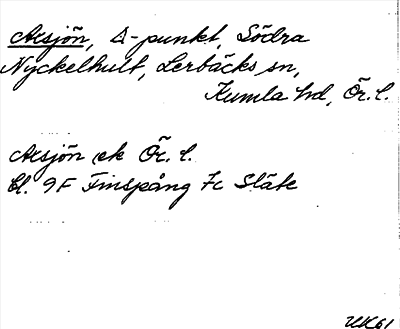 Acsjön, Δ-punkt, Södra
Nyckelhult, Lerbäcks sn,
Kumla hd, Ör. l.
Acsjön ek Ör. l.
bl. 9F Finspång 7c Släte
UK61